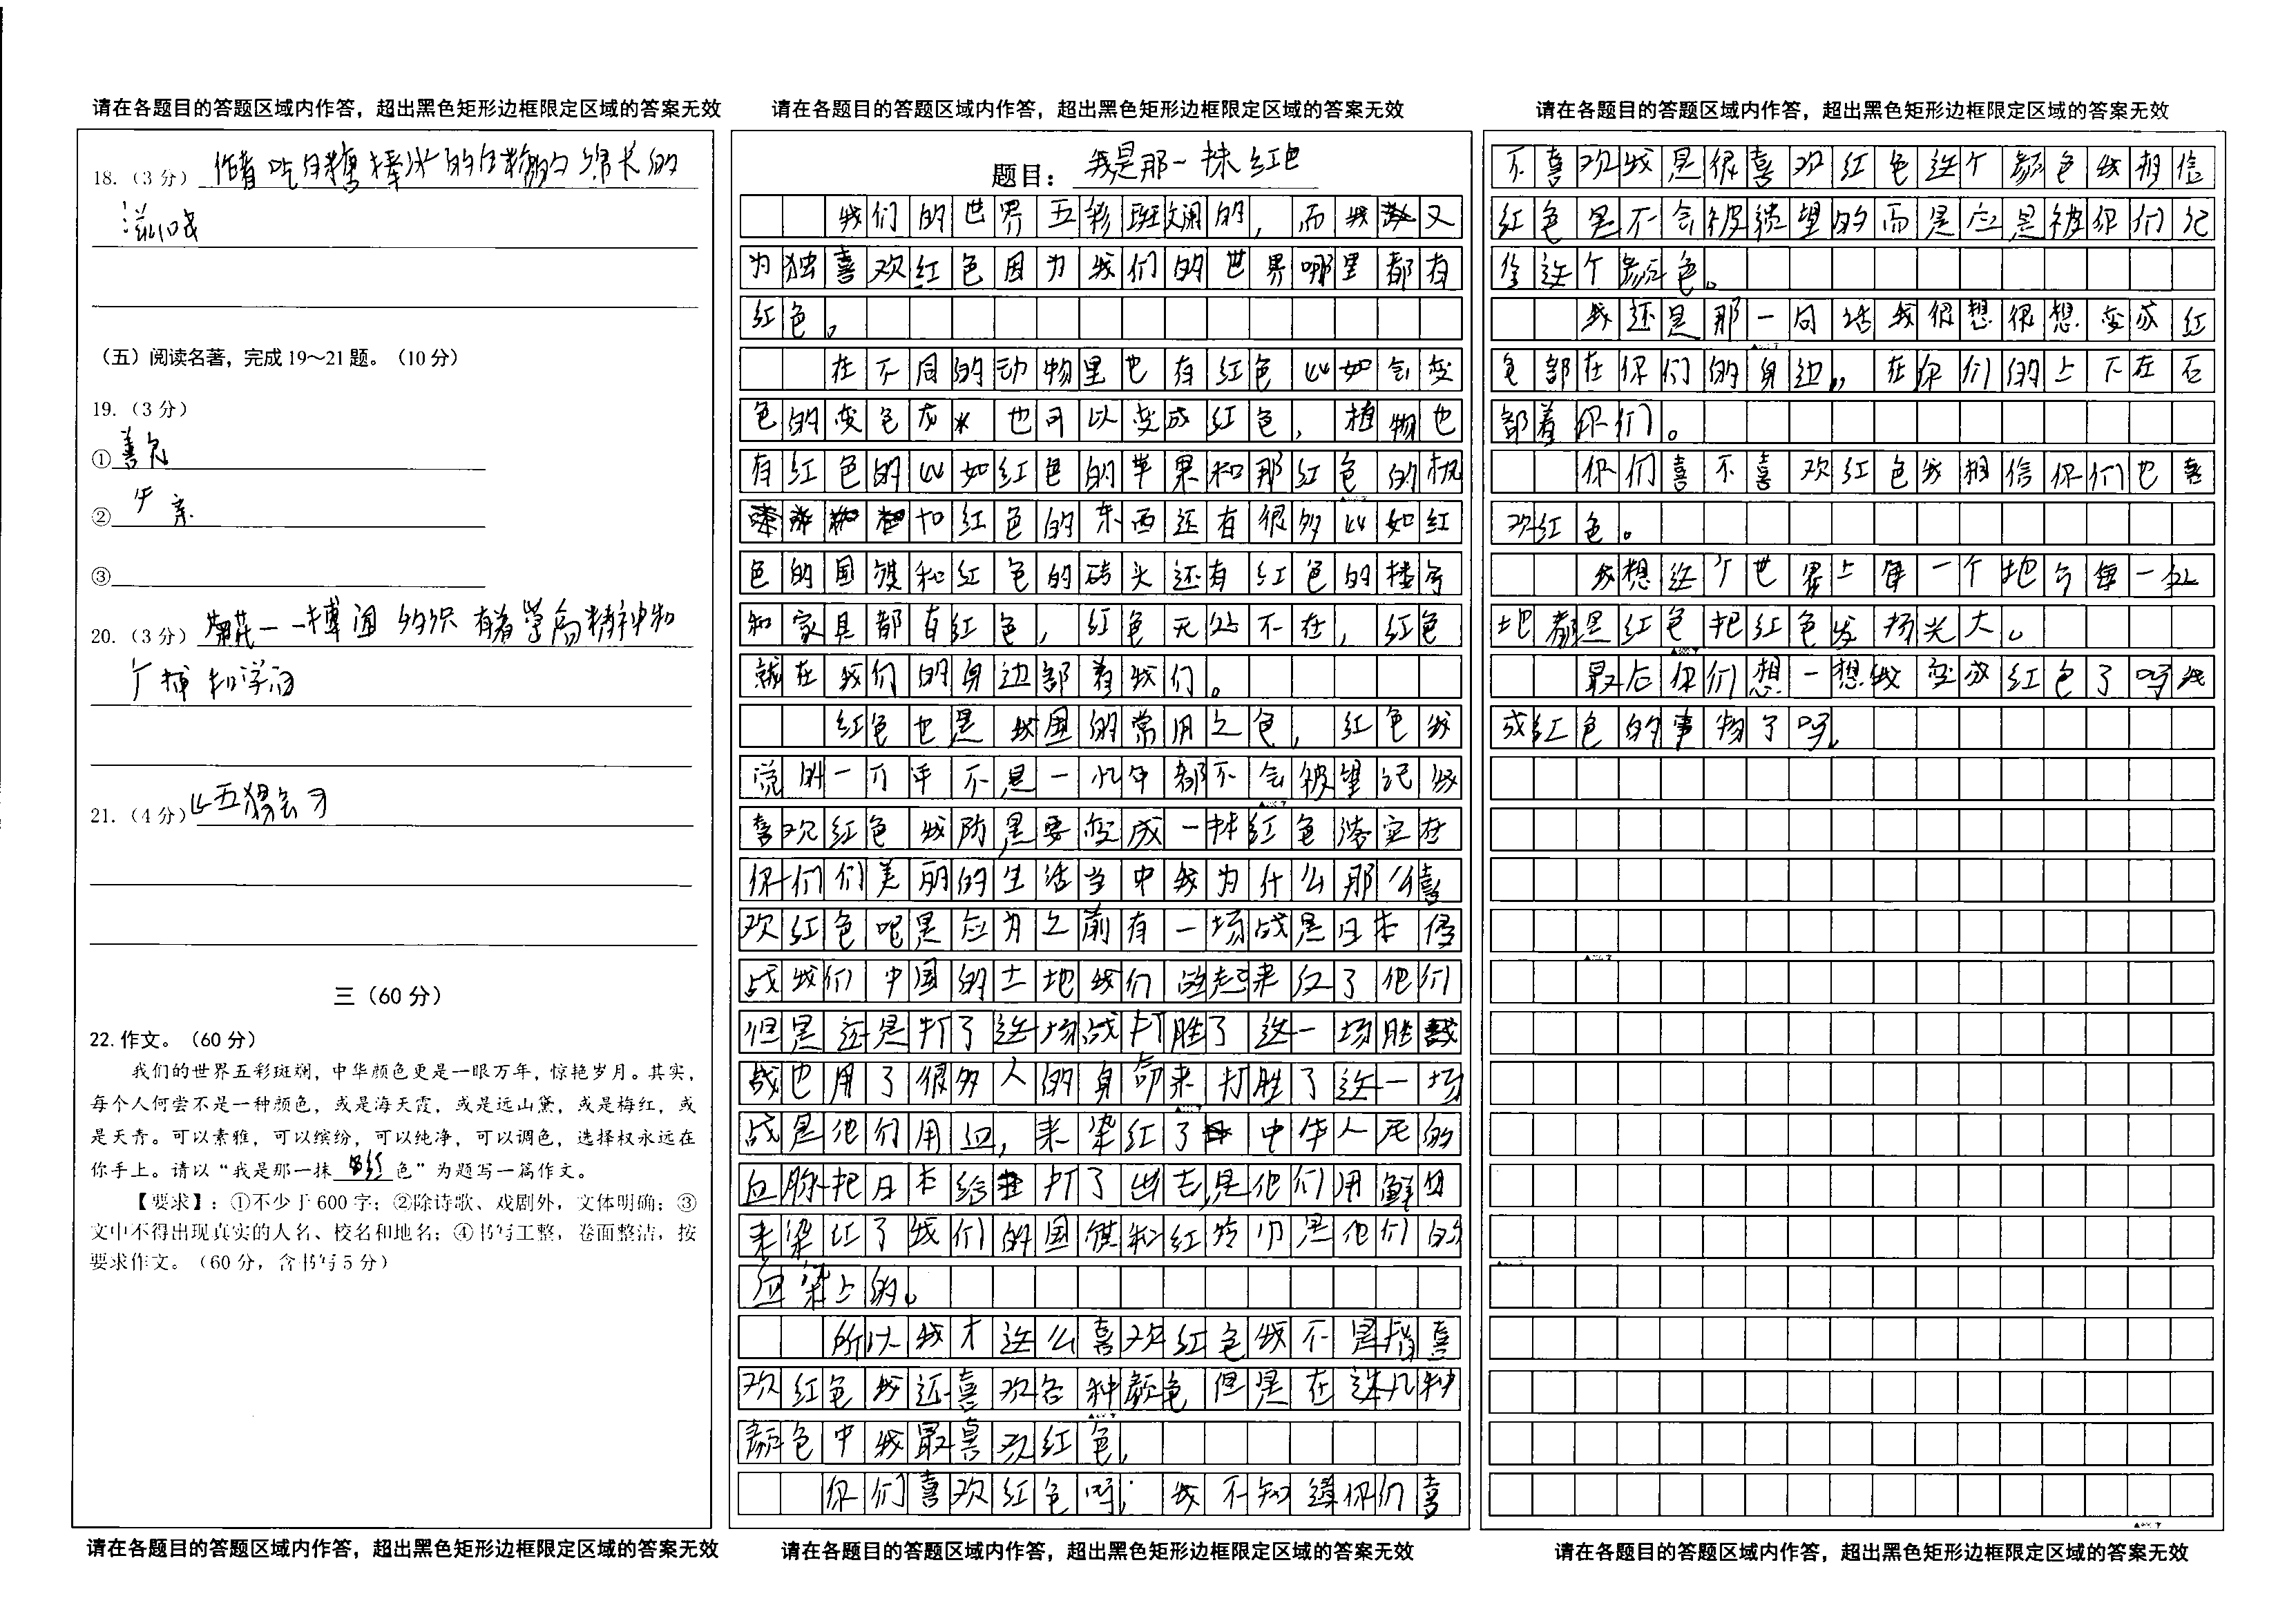 请在各题目的答题区域内作答，超出黑色矩形边框限定区域的答案无效
18.（3分）
滋味
（五）阅读名著，完成19～21题。（10分）
19.（3分）
①善良
②
③
20.（3分）
21.（4分）
三（60分）
22.作文。（60分）
我们的世界五彩斑斓，中华颜色更是一眼万年，惊艳岁月。其实，
每个人何尝不是一种颜色，或是海天霞，或是远山黛，或是梅红，或
是天青。可以素雅，可以缤纷，可以纯净，可以调色，选择权永远在
你手上。请以“我是那一抹 红 色”为题写一篇作文。
【要求】：①不少于600字；②除诗歌、戏剧外，文体明确；③
文中不得出现真实的人名、校名和地名；④书写工整，卷面整洁，按
要求作文。（60分，含书写5分）
请在各题目的答题区域内作答，超出黑色矩形边框限定区域的答案无效
请在各题目的答题区域内作答，超出黑色矩形边框限定区域的答案无效
题目：我是那一抹红色
我们的世界五彩斑斓的，而我又
为独喜欢红色因为我们的世界哪里都有
红色。
在不同的动物里也有红色比如会变
色的变色龙也可以变成红色，植物也
有红色的比如红色的苹果和那红色的枫
和红色的东西还有很多比如红
色的国旗和红色的砖头还有红色的楼房
和家具都有红色，红色无处不在，红色
就在我们的身边部着我们。
红色也是我国的常用之色，红色我
说的一百年不是一几年都不会被望记我
喜欢红色我防是要变成一抹红色落实在
你们们美丽的生活当中我为什么那么喜
欢红色呢是应为之前有一场战是日本侵
战我们中国的土地我们站起来反了他们
但是还是打了这场战打胜了这一场胜
战也用了很多人的身命来打胜了这一场
战是他们用血，来染红了中华人民的
血脉把日本给打了出去，是他们用鲜血
来染红了我们的国旗和红领巾是他们的
血染上的。
所以我才这么喜欢红色我不是指喜
欢红色我还喜欢各种颜色但是在这几种
颜色中我最喜欢红色，
你们喜欢红色吗；我不知道你们喜
请在各题目的答题区域内作答，超出黑色矩形边框限定区域的答案无效
请在各题目的答题区域内作答，超出黑色矩形边框限定区域的答案无效
不喜欢我是很喜欢红色这个颜色我相信
红色是不会被遗望的而是应是被你们记
住这个颜色。
我还是那一句话我很想很想变成红
色部在你们的身边，在你们的上下左右
部着你们。
你们喜不喜欢红色我相信你们也喜
欢红色。
我想这个世界上每一个地方每一处
地都是红色把红色发扬光大。
最后你们想一想我变成红色了吗我
成红色的事物了吗，
请在各题目的答题区域内作答，超出黑色矩形边框限定区域的答案无效